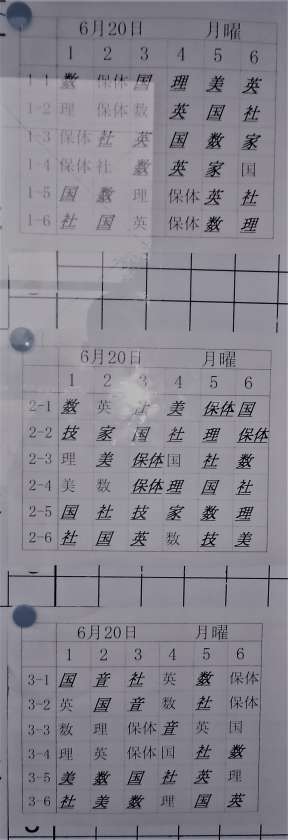 6月20日 月曜
1 2 3 4 5 6
1-1 数 保体 国 理 美 英
1-2 理 保体 数 英 国 社
1-3 保体 社 英 国 数 家
1-4 保体 社 数 英 家 国
1-5 国 数 理 保体 英 社
1-6 社 国 英 保体 数 理
6月20日 月曜
1 2 3 4 5 6
2-1 数 英 社 美 保体 国
2-2 技 家 国 社 理 保体
2-3 理 美 保体 国 社 数
2-4 美 数 保体 理 国 社
2-5 国 社 技 家 数 理
2-6 社 国 英 数 技 美
6月20日 月曜
1 2 3 4 5 6
3-1 国 音 社 英 数 保体
3-2 英 国 音 数 社 保体
3-3 数 理 保体 音 英 国
3-4 理 英 保体 国 社 数
3-5 美 数 国 社 英 理
3-6 社 美 数 理 国 英